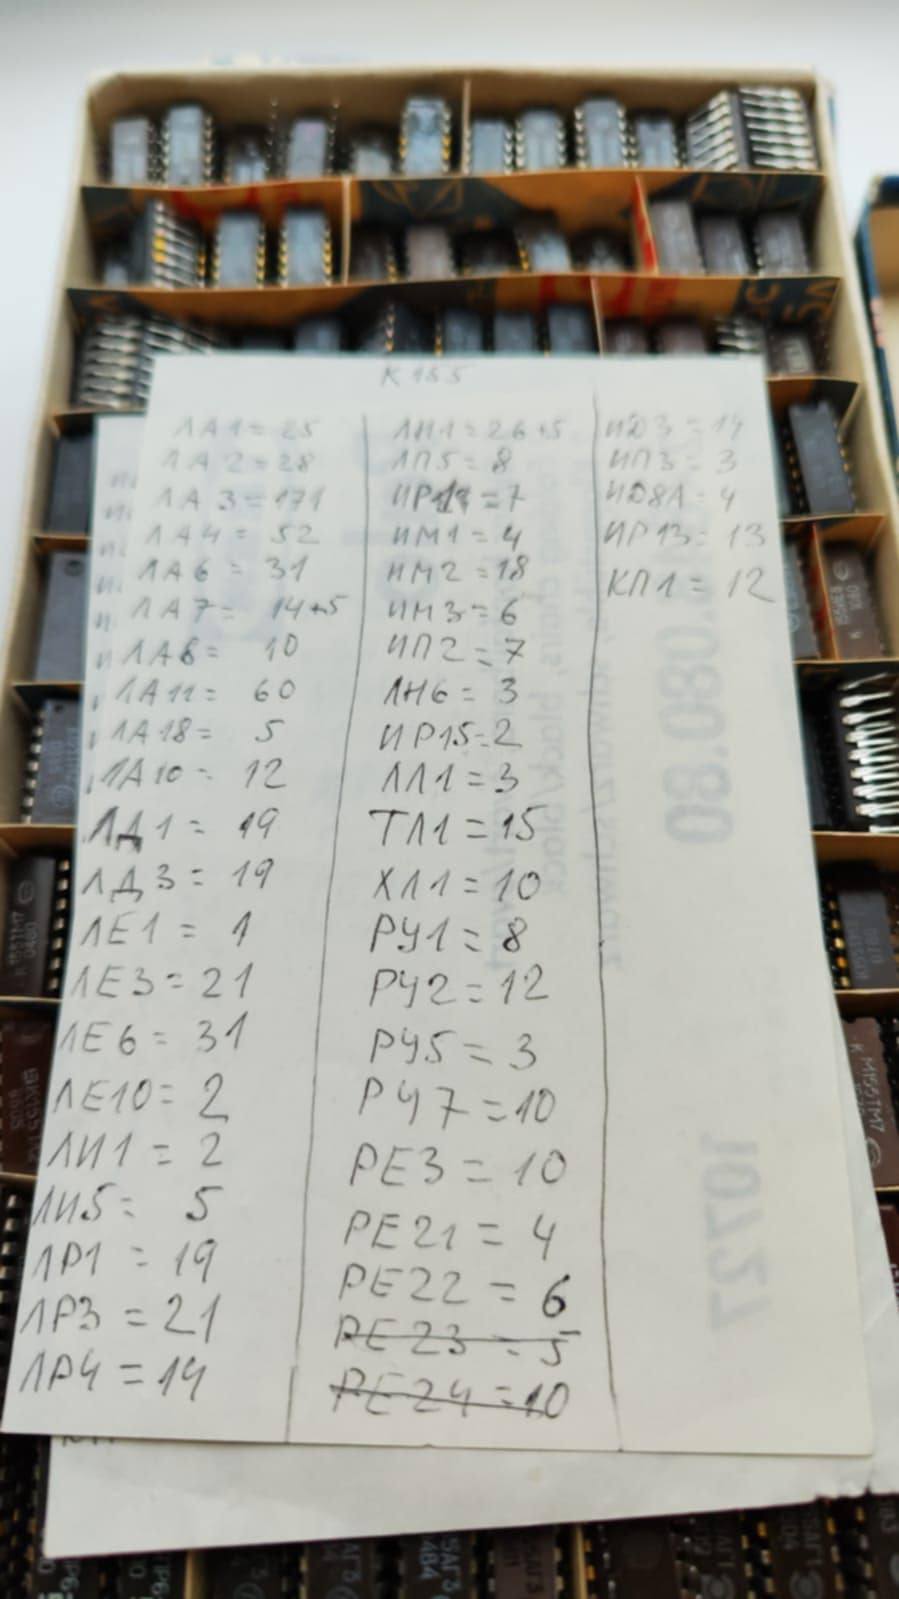 К155
ЛА1 = 25
ЛА2 = 28
ЛА3 = 171
ЛА4 = 52
ЛА6 = 31
ЛА7 = 14+5
ЛА8 = 10
ЛА11 = 60
ЛА18 = 5
ЛА10 = 12
ЛД1 = 19
ЛД3 = 19
ЛЕ1 = 1
ЛЕ3 = 21
ЛЕ6 = 31
ЛЕ10 = 2
ЛИ1 = 2
ЛИ5 = 5
ЛР1 = 19
ЛР3 = 21
ЛР4 = 14
ЛН1 = 26+5
ЛП5 = 8
= 7
ИМ1 = 4
ИМ2 = 18
ИМ3 = 6
ИП2 = 7
ЛН6 = 3
ИР15 = 2
ЛЛ1 = 3
ТЛ1 = 15
ХЛ1 = 10
РУ1 = 8
РУ2 = 12
РУ5 = 3
РУ7 = 10
РЕ3 = 10
РЕ21 = 4
РЕ22 = 6
РЕ23 = 5
РЕ24 = 10
ИД3 = 14
ИП3 = 3
ИД8А = 4
ИР13 = 13
КП1 = 12
080.80
10727
КМ155ТМ7